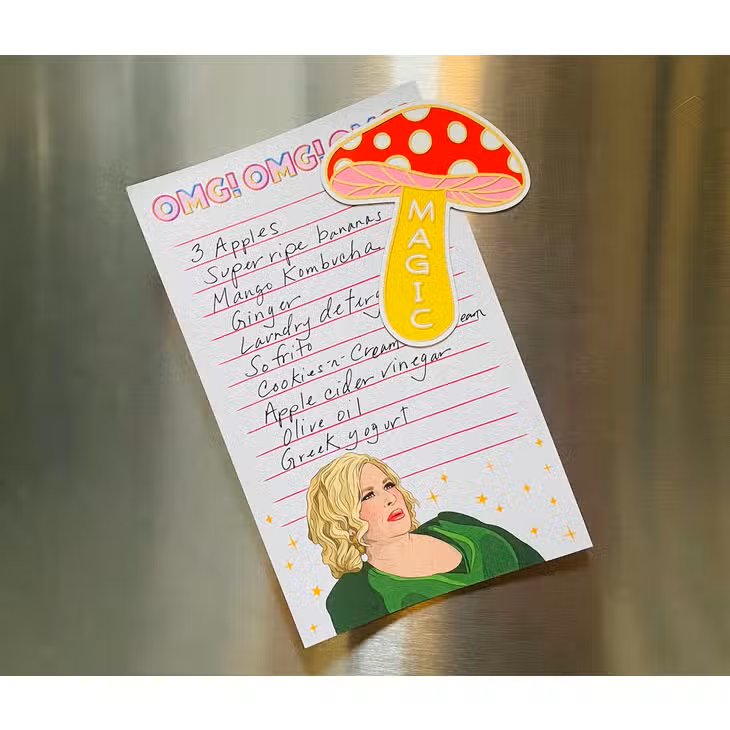 OMG! OMG! OMG!
MAGIC
3 Apples
Super ripe bananas
Mango Kombucha
Ginger
Laundry
Sofrito
Cookies-n-Cream
Apple cider vinegar
Olive oil
Greek yogurt